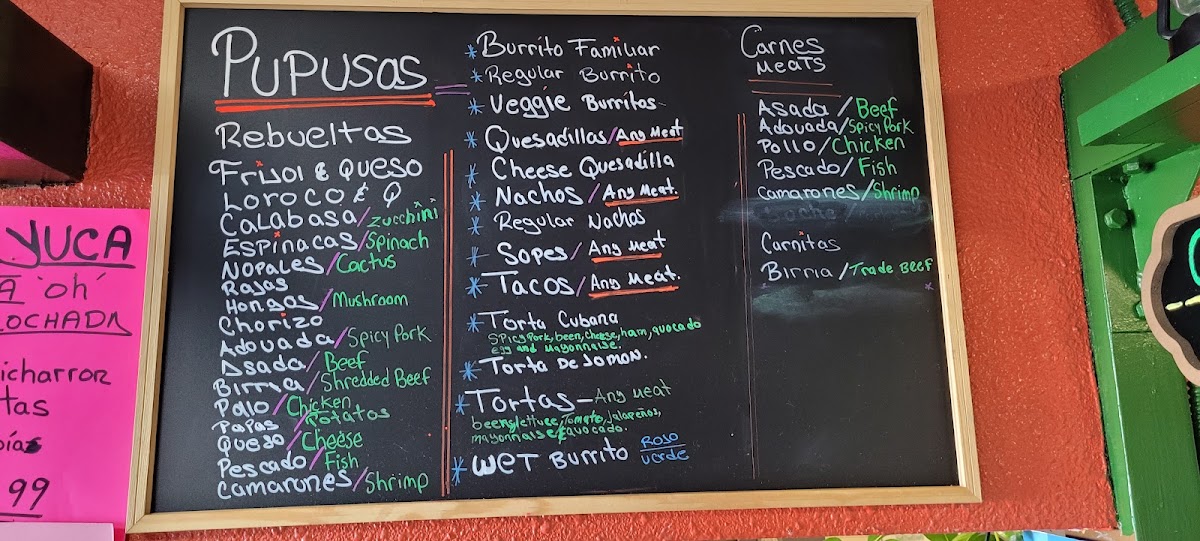 YUCA
'oh'
OCHADA
icharron
tas
99
PUPUSAS
Rebueltas
Frijol & QUESO
LOROCO & Q
CALABASA/Zucchini
ESPINACAS/Spinach
NOPALES/Cactus
Rajas
Hongos/Mushroom
Chorizo
Adovada/Spicy Pork
Asada/Beef
Birria/Shredded Beef
Pollo/Chicken
PAPAS/Potatos
Queso/Cheese
Pescado/Fish
Camarones/Shrimp
* Burrito Familiar
* Regular Burrito
* Veggie Burritos
* Quesadillas/Any Meat
* Cheese Quesadilla
* Nachos/Any Meat.
* Regular Nachos
* Sopes/Any Meat
* Tacos/Any Meat.
* Torta Cubana
Spicy Pork, been, cheese, ham, avocado
egg and mayonnaise.
* Torta De Jamon.
* Tortas-Any meat
beens, lettuce, Tomato, jalapeños,
mayonnaise & avocado.
* WET Burrito Rojo
verde
Carnes
MEATS
Asada/Beef
Adovada/Spicy Pork
Pollo/Chicken
Pescado/Fish
Camarones/Shrimp
Carnitas
Birria/Trade Beef